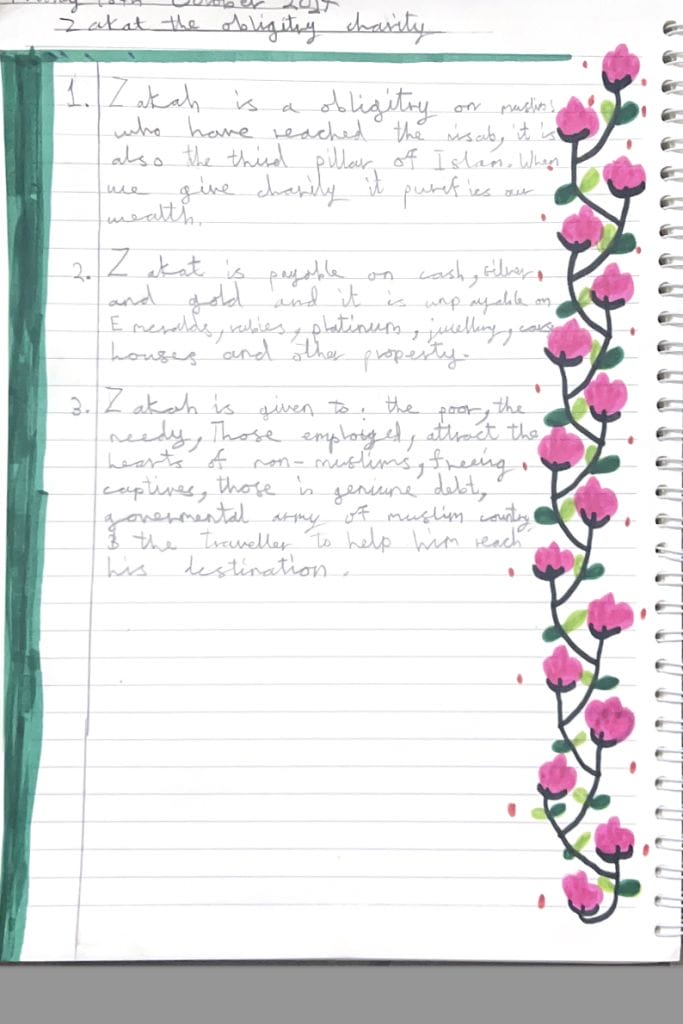 October 2017
Zakat the obligitry charity
1. Zakah is a obligitry on muslims
who have reached the nisab, it is
also the third pillar of Islam. When
we give charity it purifies our
wealth.
2. Zakat is payable on cash, silver
and gold and it is unpayable on
Emeralds, rubies, platinum, jewellery, cars
houses and other property.
3. Zakah is given to: the poor, the
needy, Those emploiged, attract the
hearts of non-muslims, freeing
captives, those in genuine debt,
govermental army of muslim country
& the traveller to help him reach
his destination.